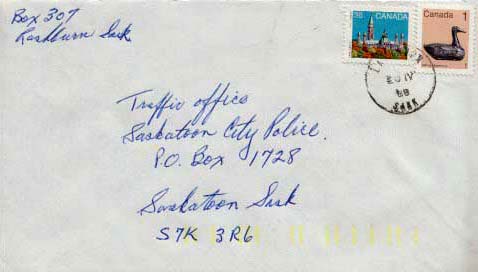 Box 307
Lashburn Sask
36 CANADA
Canada 1
SASK
Traffic office
Saskatoon City Police.
P.O. Box 1728
Saskatoon Sask
S7K 3R6